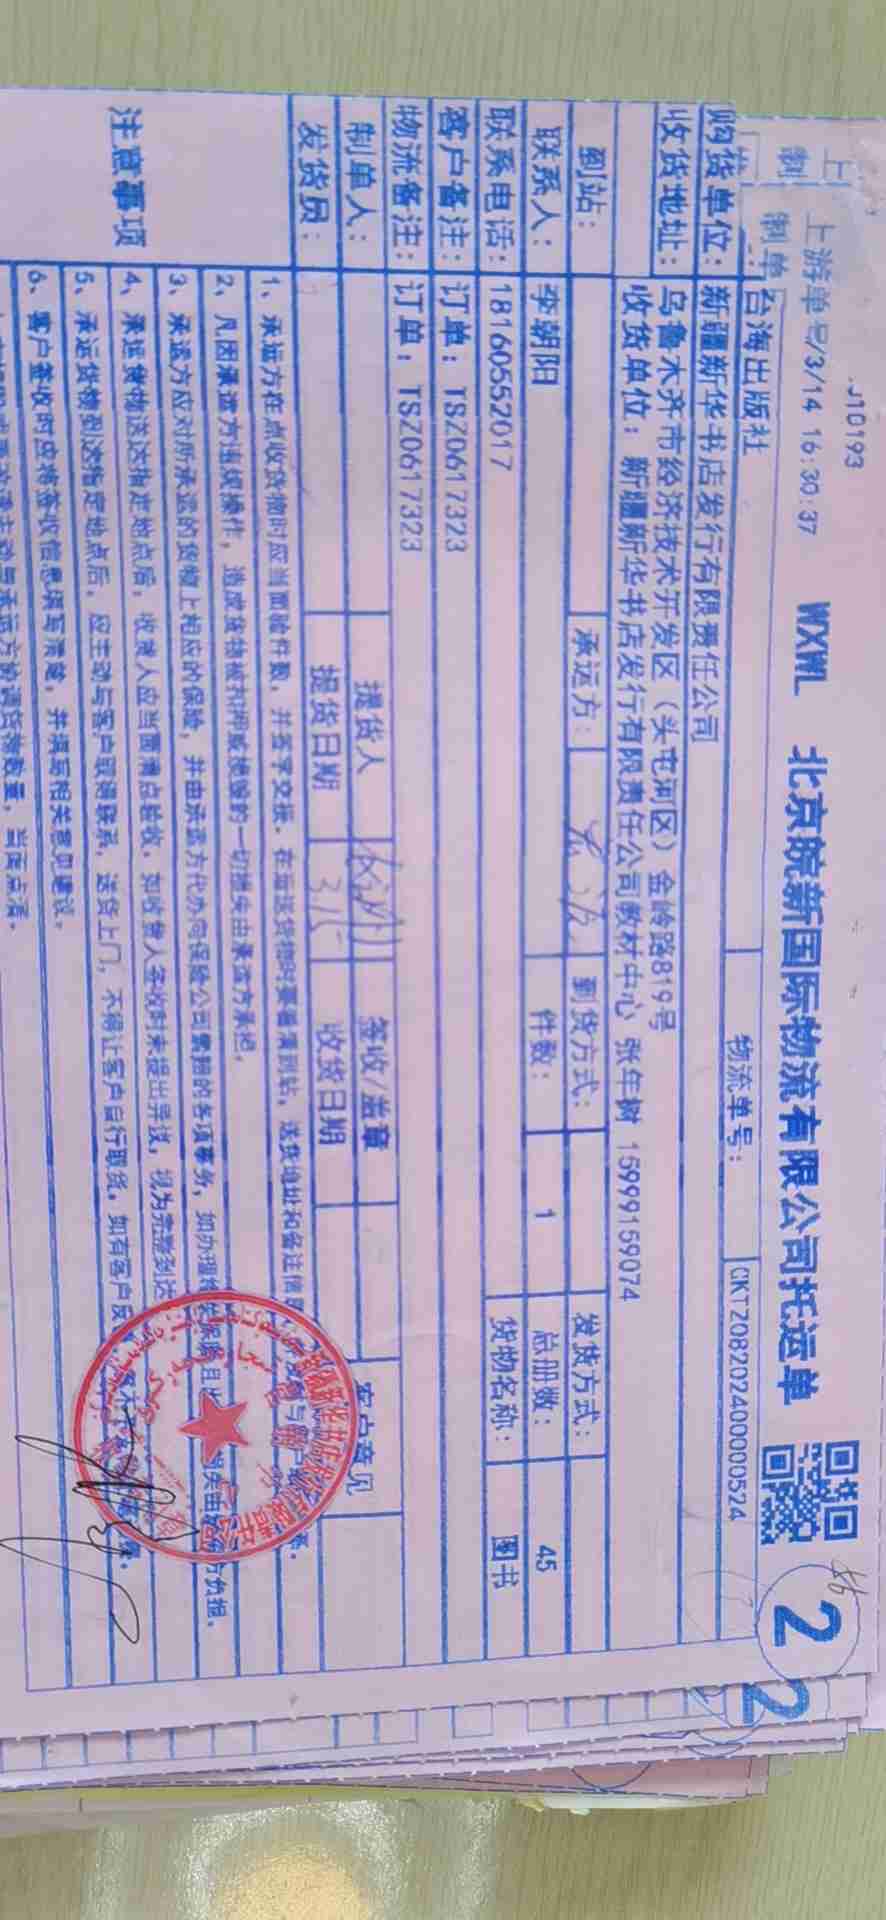 J10193
上游单号/3/14 16:30:37 WXWL 北京皖新国际物流有限公司托运单
2
上
制
制单
台海出版社 物流单号： CKTZ08202400000524
购货单位： 新疆新华书店发行有限责任公司
收货地址： 乌鲁木齐市经济技术开发区（头屯河区）金岭路819号
收货单位：新疆新华书店发行有限责任公司教材中心 张年树 15999159074
到站： 承运方： 到货方式： 发货方式：
联系人： 李朝阳 件数： 1 总册数： 45
联系电话： 18160552017 货物名称： 图书
客户备注： 订单：TSZ0617323
物流备注： 订单：TSZ0617323
制单人： 提货人 签收/盖章 客户意见
发货员： 提货日期 3.15 收货日期
注意事项
1、承运方在点收货物时应当面验件数，并签字交接。在运送货物时要看清到站，送货地址和备注信息
2、凡因承运方违规操作，造成货物被扣押或损毁的一切损失由承运方承担。
3、承运方应对所承运的货物上相应的保险，并由承运方代办向保险公司索赔的各项事务，如办理 方负担。
4、承运货物送达指定地点后，收货人应当面清点验收，如收货人签收时未提出异议，视为完整到达
5、承运货物到达指定地点后，应主动与客户取得联系，送货上门，不得让客户自行取货。如有客户反
6、客户签收时应将签收信息填写清楚，并填写相关意见建议。
2